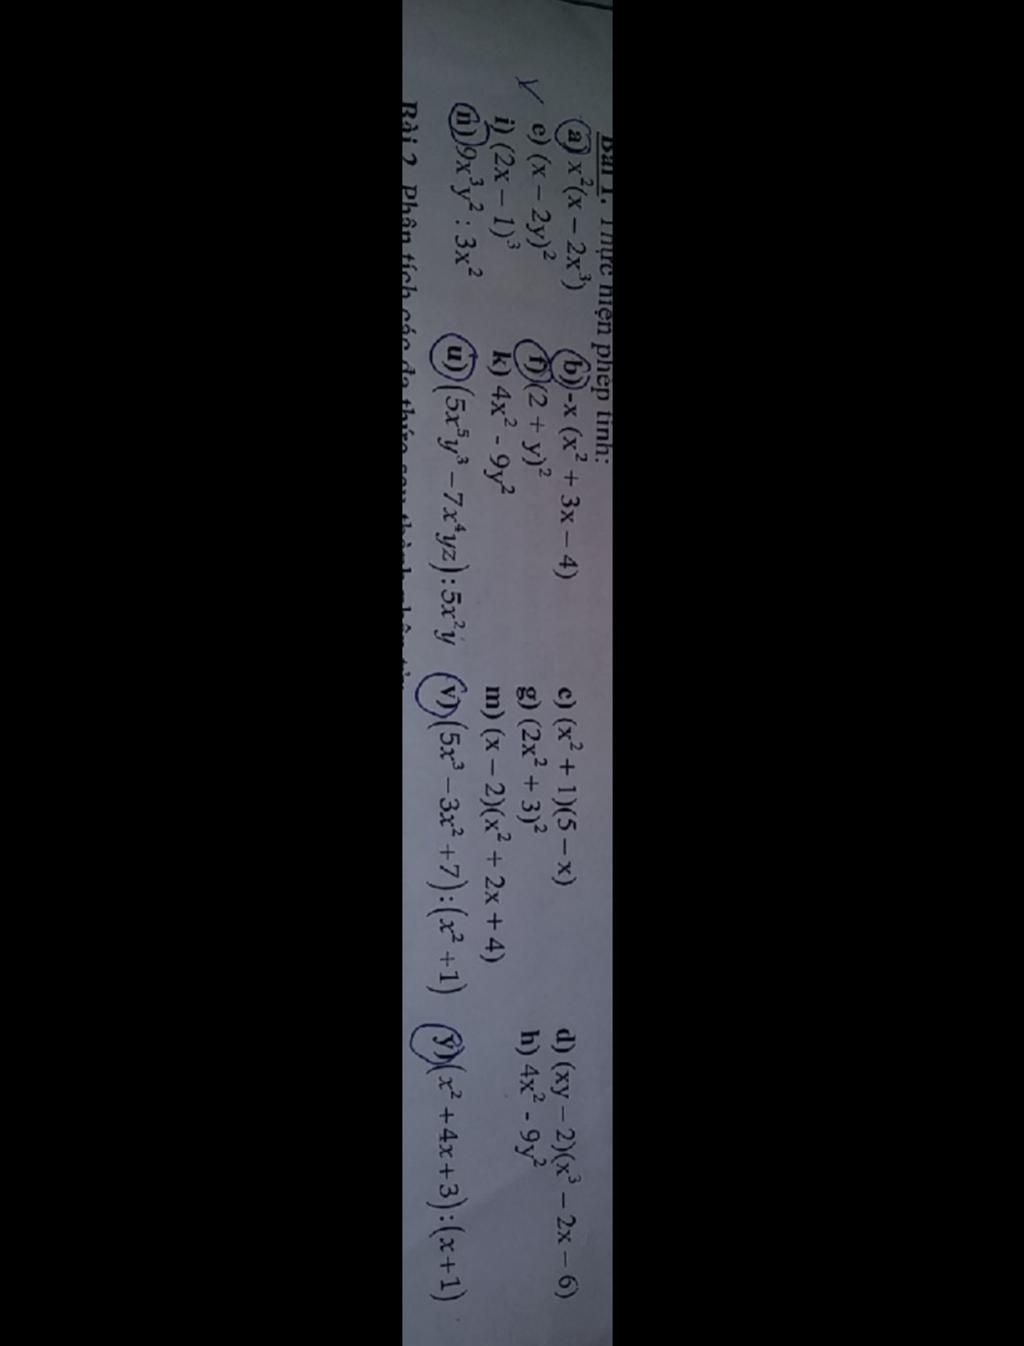 Bài 1. Thực hiện phép tính:
a) x²(x – 2x³) b) -x (x² + 3x – 4) c) (x² + 1)(5 – x) d) (xy – 2)(x³ – 2x – 6)
e) (x – 2y)² f) (2 + y)² g) (2x² + 3)² h) 4x² - 9y²
i) (2x – 1)³ k) 4x² - 9y² m) (x – 2)(x² + 2x + 4)
n) 9x³y² : 3x² u) (5x⁵y³ – 7x⁴yz) : 5x²y v) (5x³ – 3x² + 7) : (x² + 1) y) (x² + 4x + 3) : (x + 1)
Bài 2. Phân tích các đa thức sau thành nhân tử: